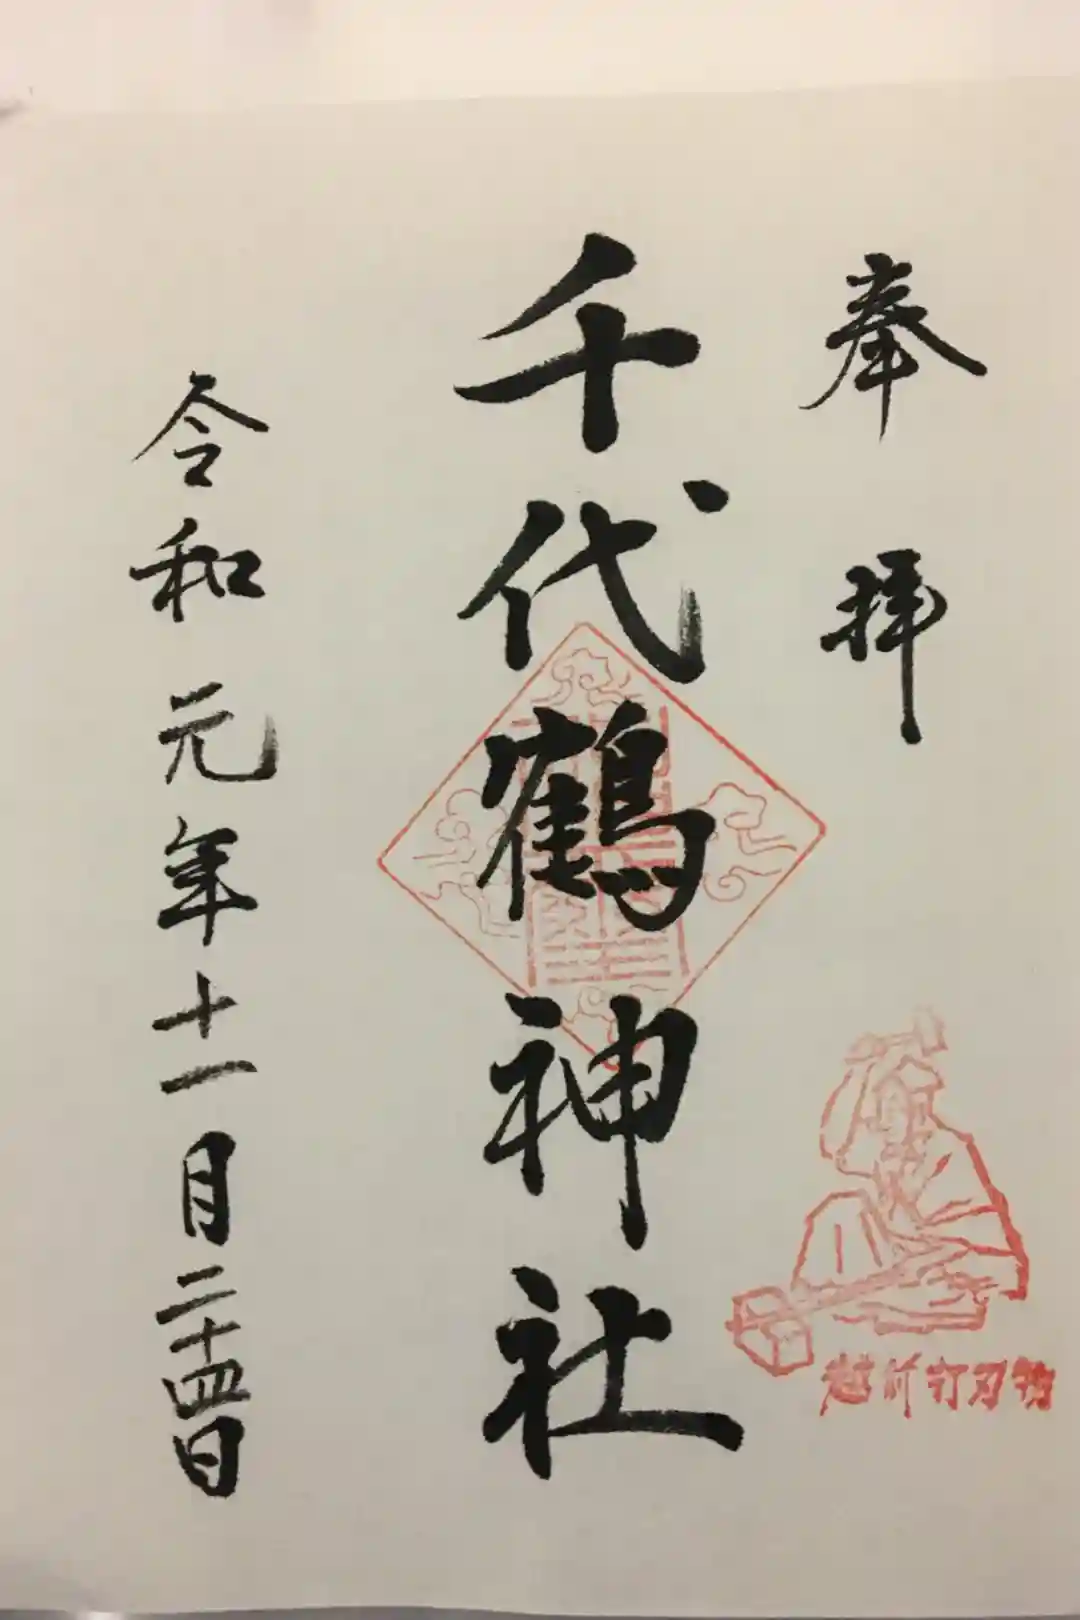 奉拝
千代鶴神社
令和元年十一月二十四日
越前打刃物